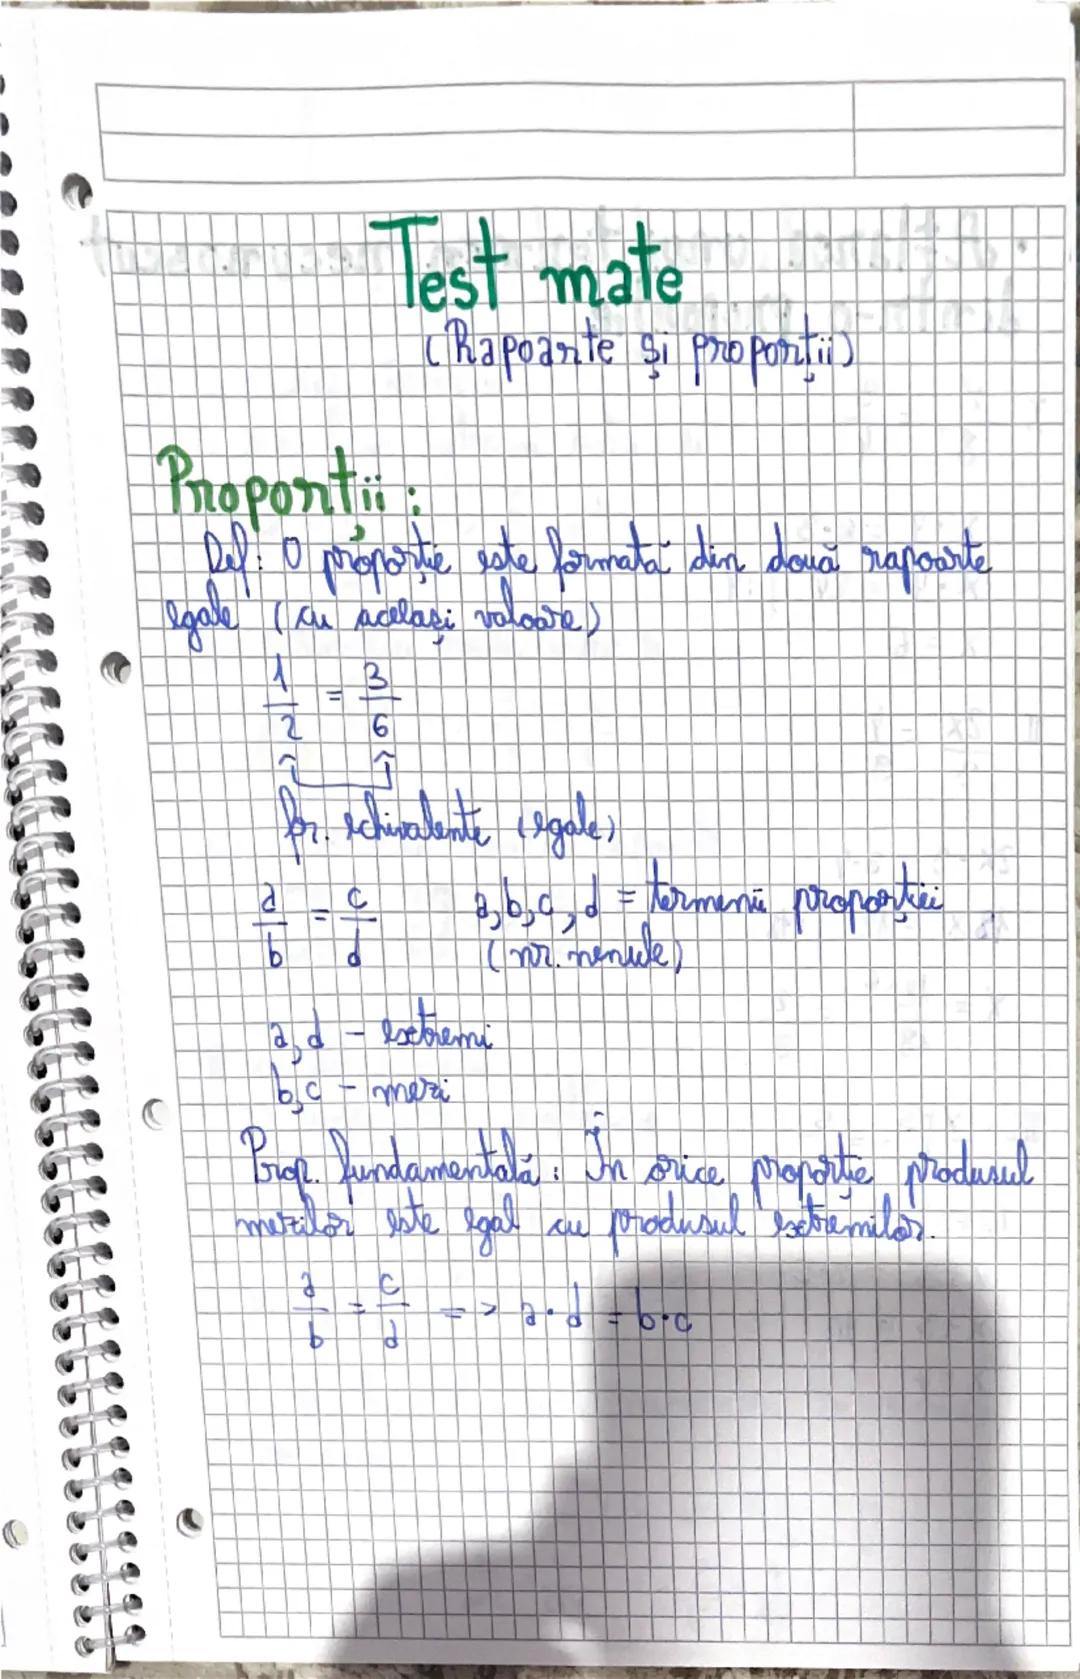 Test mate
(Rapoarte și proporții)
Proporții:
Def: O proporție este formată din două rapoarte
egale (cu același valoare)
1/2 = 3/6
fr. echivalente (egale)
a/b = c/d a,b,c,d = termenii proporției
(nr. nenule)
a,d - extremi
b,c - mezi
Prop. fundamentală: În orice proporție produsul
mezilor este egal cu produsul extremilor.
a/b = c/d => a·d = b·c